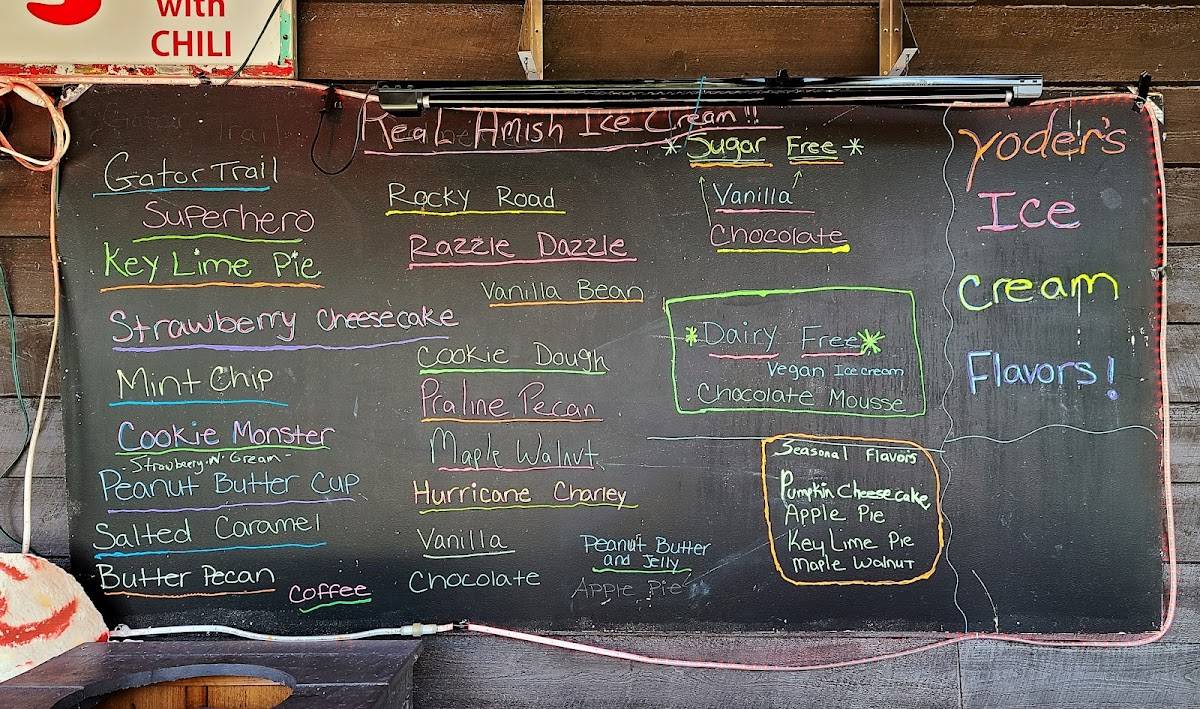 with
CHILI
Real Amish Ice Cream!!
Gator Trail
Superhero
Key Lime Pie
Strawberry Cheesecake
Mint Chip
Cookie Monster
- Strawberry·N·Cream -
Peanut Butter Cup
Salted Caramel
Butter Pecan
Coffee
Rocky Road
Razzle Dazzle
Vanilla Bean
Cookie Dough
Praline Pecan
Maple Walnut
Hurricane Charley
Vanilla
Chocolate
Peanut Butter
and Jelly
Apple Pie
*Sugar Free*
Vanilla
Chocolate
*Dairy Free*
Vegan Ice cream
Chocolate Mousse
Seasonal Flavors
Pumpkin Cheesecake
Apple Pie
Key Lime Pie
Maple Walnut
Yoder's
Ice
Cream
Flavors!